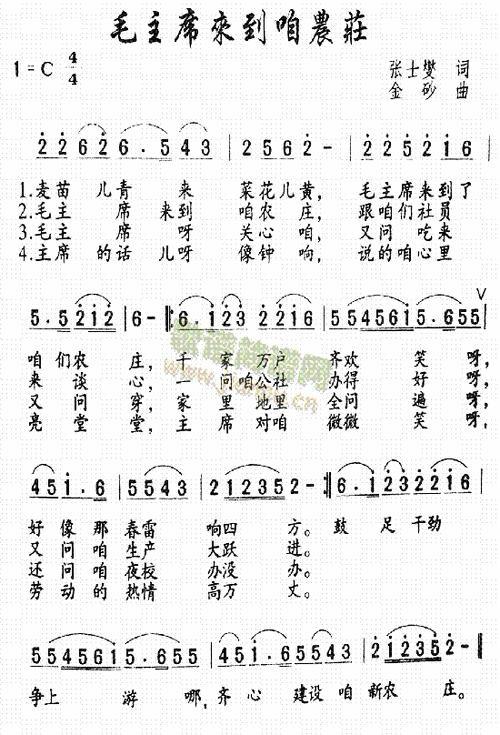 毛主席來到咱農莊
1=C 4/4
张士燮 词
金砂 曲
2 2 6 2 6 . 5 4 3 | 2 5 6 2 - | 2 2 5 2 1 6 |
1.麦苗 儿青 来 菜花儿黄, 毛主席来到了
2.毛主 席来到 咱农庄, 跟咱们社员
3.毛主 席 呀 关心咱, 又问吃来
4.主席 的话儿呀 像钟响, 说的咱心里
5 . 5 2 1 2 | 6 - |: 6 . 1 2 3 2 2 1 6 | 5 5 4 5 6 1 5 . 6 5 5 |
咱们农 庄, 千 家万户 齐欢 笑 呀,
来谈 心, 一问咱公社 办得 好 呀,
又问 穿, 家里地里 全问 遍 呀,
亮堂 堂, 主席对咱 微微 笑 呀,
4 5 1 . 6 | 5 5 4 3 | 2 1 2 3 5 2 - :| 6 . 1 2 3 2 2 1 6 |
好像那 春雷 响四 方。 鼓足干劲
又问咱 生产 大跃 进。
还问咱 夜校 办没 办。
劳动的 热情 高万 丈。
5 5 4 5 6 1 | 5 . 6 5 5 | 4 5 1 . 6 5 5 4 3 | 2 1 2 3 5 2 - |
争上 游 哪, 齐心 建设咱 新农 庄。